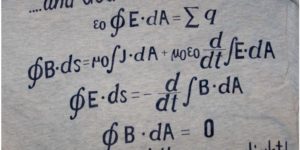 ....and
ε₀ ∮E·dA = Σ q
∮B·ds = μ₀∫J·dA + μ₀ε₀ d/dt ∫E·dA
∮E·ds = - d/dt ∫B·dA
∮B·dA = 0